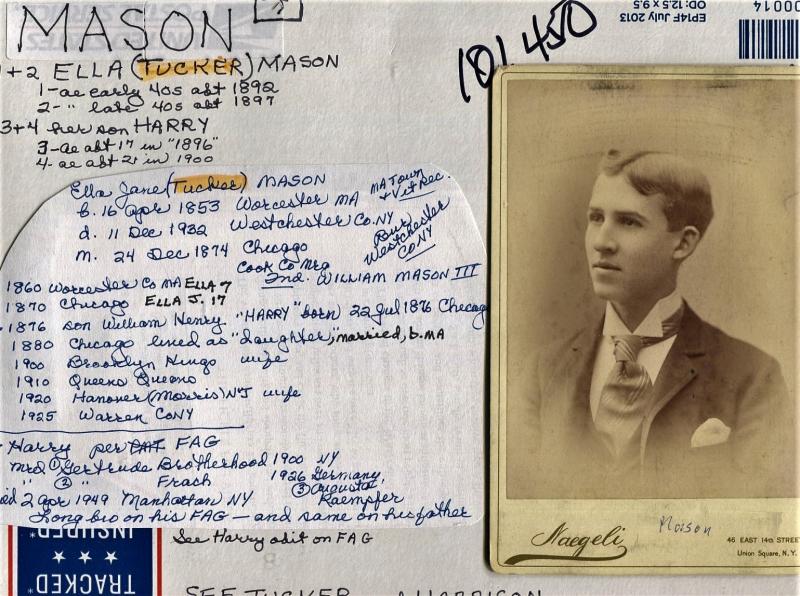 MASON
1+2 ELLA (TUCKER) MASON
1-ae early 40s abt 1892
2- " late 40s abt 1897
3+4 her son HARRY
3-ae abt 17 in "1896"
4- ae abt 21 in 1900
101 450
EP14F July 2013
OD: 12.5 x 9.5
00014
Ella Jane (Tucker) MASON
b. 16 apr 1853 Worcester MA
MA Town
+ Vit Rec.
d. 11 Dec 1932 Westchester Co. NY
Bur
Westchester
CO NY
m. 24 Dec 1874 Chicago
Cook Co Mrg
2nd. WILLIAM MASON III
1860 Worcester Co MA ELLA 7
1870 Chicago ELLA J. 17
1876 son William Henry "HARRY" born 22 Jul 1876 Checag
1880 Chicago lined as "daughter", married, b. MA
1900 Brooklyn Kings wife
1910 Queens Queens
1920 Hanover (Morris) NJ wife
1925 Warren Co NY
Harry per FAG
mrd ① Gertrude Brotherhood 1900 NY
" ② " Frash 1926 Germany,
③ Augusta
Kaempfer
ied 2 apr 1949 Manhattan NY
Long bio on his FAG - and same on his father
See Harry obit on FAG
INSURED*
TRACKED
SEE TUCKER HARRISON
Naegeli
Mason
46 EAST 14th STREE
Union Square, N.Y.